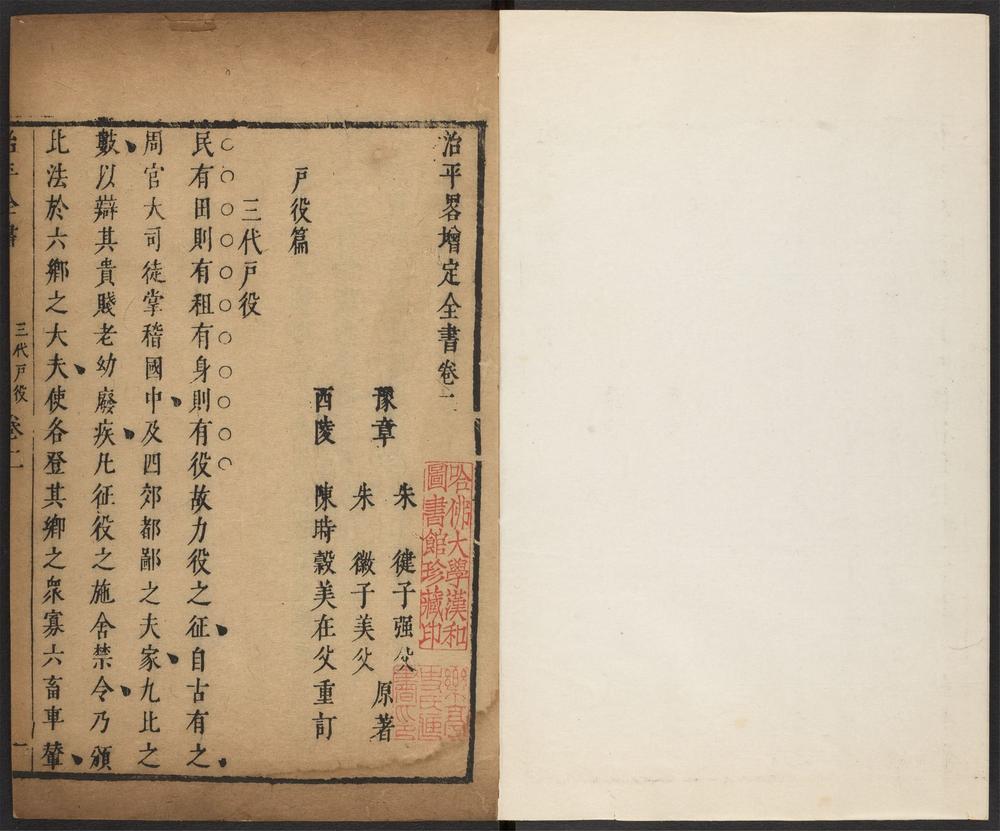 治平畧增定全書卷二
豫章
朱 健子强父
朱 徽子美父
原著
西陵 陳時穀美在父重訂
戶役篇
三代戶役
民有田則有租有身則有役故力役之征自古有之
周官大司徒掌稽國中及四郊都鄙之夫家九比之
數以辯其貴賤老幼廢疾凡征役之施舍禁令乃頒
比法於六鄉之大夫使各登其鄉之眾寡六畜車輦
治平全書
三代戶役
卷二
一
哈佛大學漢和
圖書館珍藏印